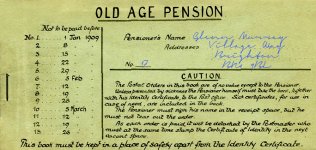 OLD AGE PENSION
Not to be paid before
No. 1. 1 Jan 1909
2 8
3 15
4 22
5 29
6 5 Feb
7 12
8 19
9 26
10 5 March
11 12
12 19
13 26
Pensioner's Name
Addresses Village Way
Brighton
No.
CAUTION.
The Postal Orders in this book are of no value except to the Pensioner
Unless prevented by sickness the Pensioner himself must take the book, together
with his Identity Certificate, to the Post Office. Sick certificates, for use in
case of need, are included in the book.
The Pensioner must sign his name in the receipt space, but he
must not tear out the order.
As each order is paid it will be detached by the Postmaster who
must at the same time stamp the Certificate of Identity in the next
vacant space.
This book must be kept in a place of safety apart from the Identity Certificate.